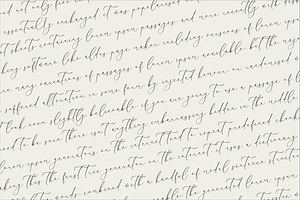 not only five
essentially unchanged. it was popularised
of sheets containing lorem ipsum passages and more recently with desk
software like aldus page maker including versions of lorem ipsum
many variations of passages of lorem ipsum available but the major
suffered alteration in some form by injected humour or randomised
look even slightly believable. if you are going to use a passage of
need to be sure there isn't anything embarrassing hidden in the middle
lorem ipsum generators on the internet tend to repeat predefined chunks
making this the first true generator on the internet it uses a dictionary
words combined with a handful of model sentence structures
the generated lorem ipsum